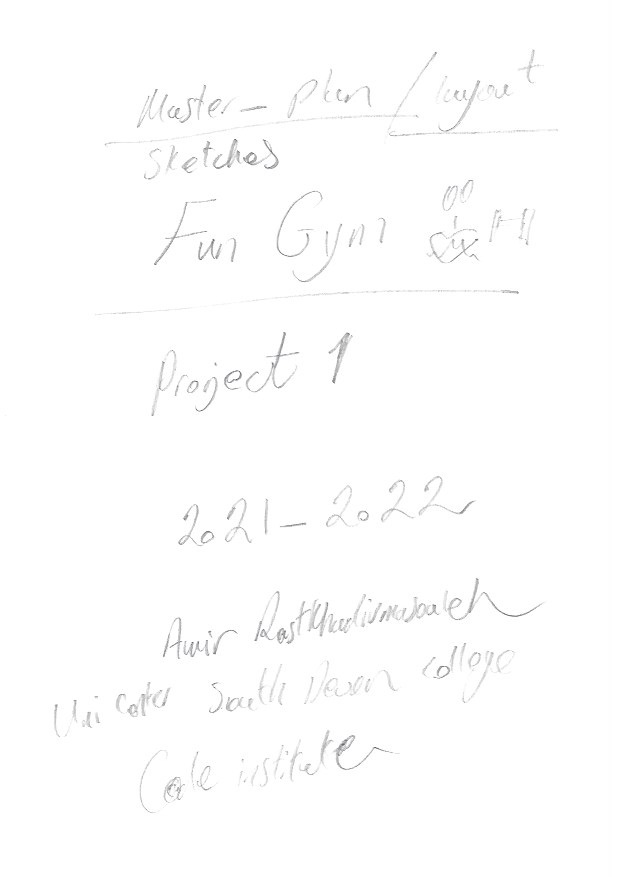 Master - plan / layout
Sketches
Fun Gym
Project 1
2021 - 2022
Amir
Uni Center South Devon college
Code institute